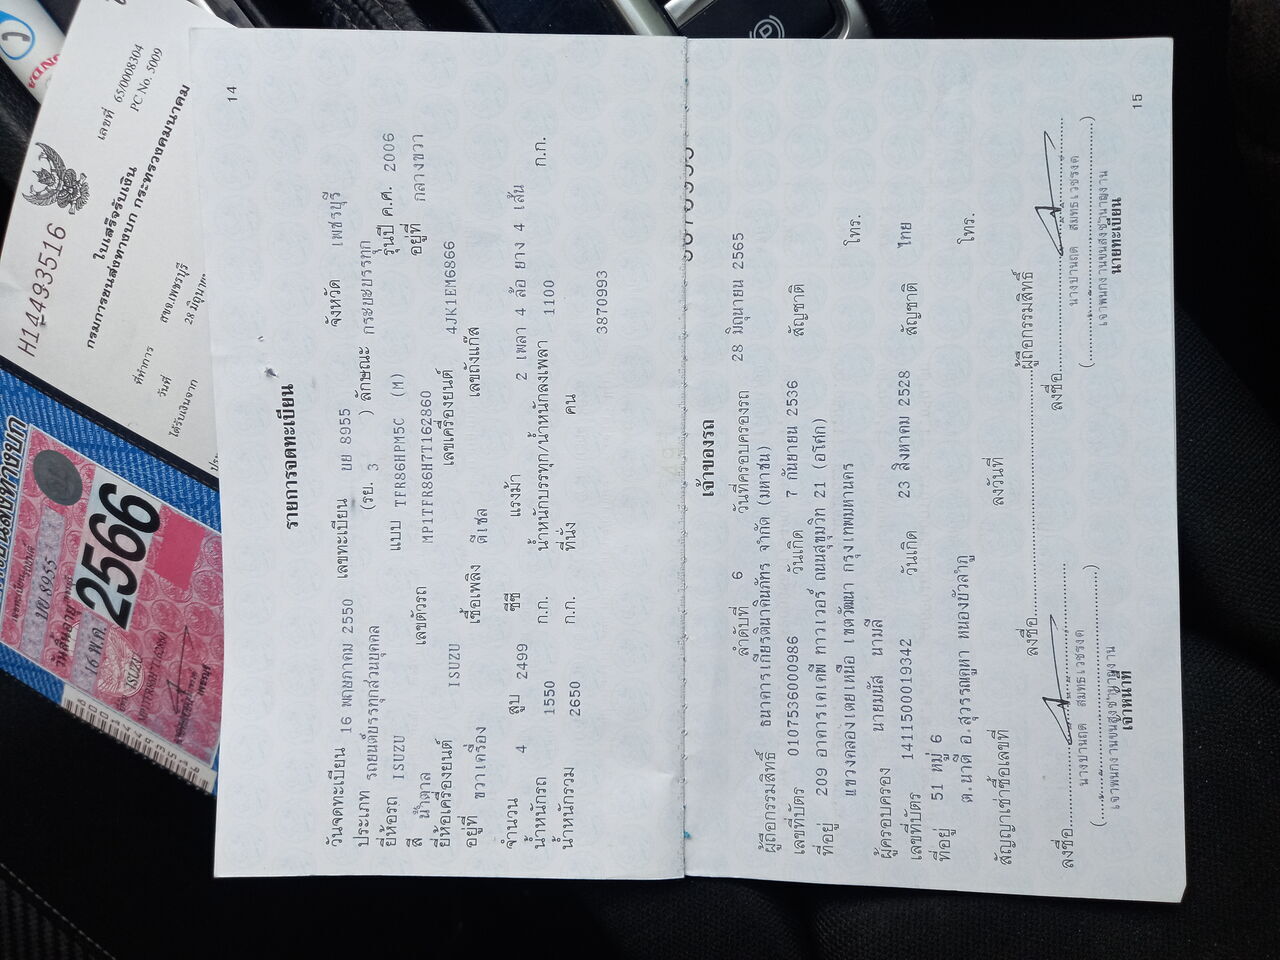 14
รายการจดทะเบียน
วันจดทะเบียน 16 พฤษภาคม 2550 เลขทะเบียน บย 8955 จังหวัด เพชรบุรี
ประเภท รถยนต์บรรทุกส่วนบุคคล (รย. 3 ) ลักษณะ กระบะบรรทุก
ยี่ห้อรถ ISUZU แบบ TFR86HPM5C (M) รุ่นปี ค.ศ. 2006
สี น้ำตาล เลขตัวรถ MP1TFR86H7T162860 อยู่ที่ กลางขวา
ยี่ห้อเครื่องยนต์ ISUZU เลขเครื่องยนต์ 4JK1EM6866
อยู่ที่ ขวาเครื่อง เชื้อเพลิง ดีเซล เลขถังแก๊ส
จำนวน 4 สูบ 2499 ซีซี แรงม้า 2 เพลา 4 ล้อ ยาง 4 เส้น
น้ำหนักรถ 1550 ก.ก. น้ำหนักบรรทุก/น้ำหนักลงเพลา 1100 ก.ก.
น้ำหนักรวม 2650 ก.ก. ที่นั่ง คน
3870993
เจ้าของรถ
ลำดับที่ 6 วันที่ครอบครองรถ 28 มิถุนายน 2565
ผู้ถือกรรมสิทธิ์ ธนาคารเกียรตินาคินภัทร จำกัด (มหาชน)
เลขที่บัตร 0107536000986 วันเกิด 7 กันยายน 2536 สัญชาติ
ที่อยู่ 209 อาคารเคเคพี ทาวเวอร์ ถนนสุขุมวิท 21 (อโศก)
แขวงคลองเตยเหนือ เขตวัฒนา กรุงเทพมหานคร โทร.
ผู้ครอบครอง นายมนัส นามสี
เลขที่บัตร 1411500019342 วันเกิด 23 สิงหาคม 2528 สัญชาติ ไทย
ที่อยู่ 51 หมู่ 6
ต.นาดี อ.สุวรรณคูหา หนองบัวลำภู โทร.
สัญญาเช่าซื้อเลขที่ ลงวันที่
ลงชื่อ ผู้ถือกรรมสิทธิ์
ลงชื่อ ลงชื่อ
เจ้าพนักงานขนส่งชำนาญงาน เจ้าพนักงานขนส่งชำนาญงาน
เจ้าหน้าที่ นายทะเบียน
15
H14493516
เลขที่ 65/0008304
PC No. 5009
ใบเสร็จรับเงิน
กรมการขนส่งทางบก กระทรวงคมนาคม
ที่ทำการ สขจ.เพชรบุรี
วันที่ 28 มิถุนา
ได้รับเงินจาก
บย 8955
วันสิ้นอายุ
16 พ.ค. 2566
ISUZU